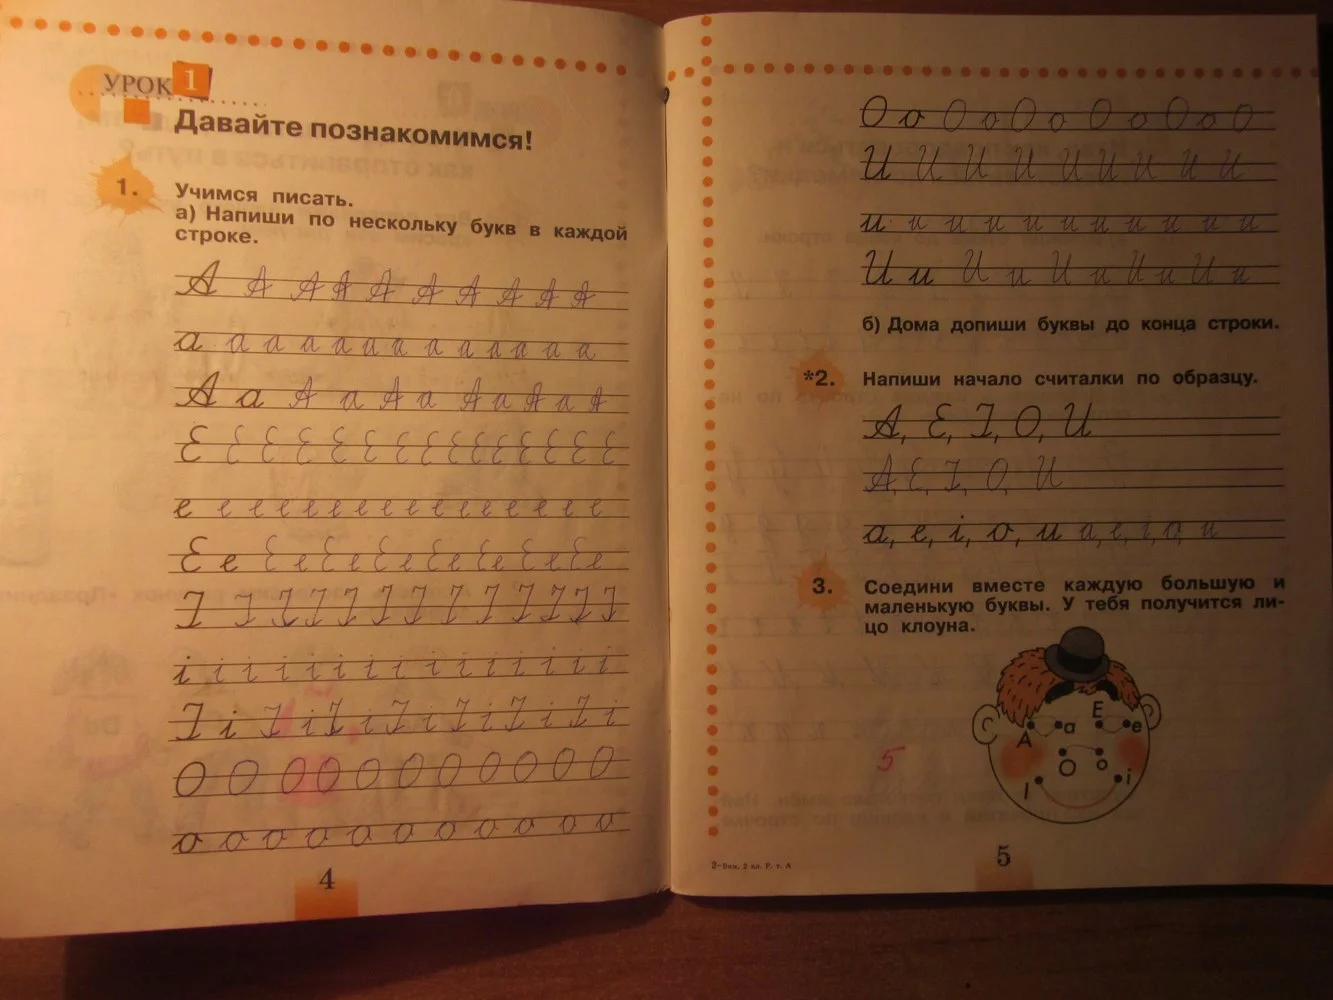 УРОК 1
Давайте познакомимся!
1. Учимся писать.
а) Напиши по нескольку букв в каждой
строке.
A A A A A A A A A A
a a a a a a a a a a a a a
A a A a A a A a A a A
E E E E E E E E E E E E E
e e e e e e e e e e e e e e e
E e E e E e E e E e E e
I I I I I I I I I I I I I
i i i i i i i i i i i i i i
I i I i I i I i I i I i I i
O O O O O O O O O O O
o o o o o o o o o o o
4
O o O o O o O o O o O
U U U U U U U U U U
u u u u u u u u u u u u u
U u U u U u U u U u
б) Дома допиши буквы до конца строки.
*2. Напиши начало считалки по образцу.
A, E, I, O, U
A, E, I, O, U
a, e, i, o, u a, e, i, o, u
3. Соедини вместе каждую большую и
маленькую буквы. У тебя получится ли-
цо клоуна.
A a E e
O o
I i
5
2–Вип, 2 кл. Р. т. А
5